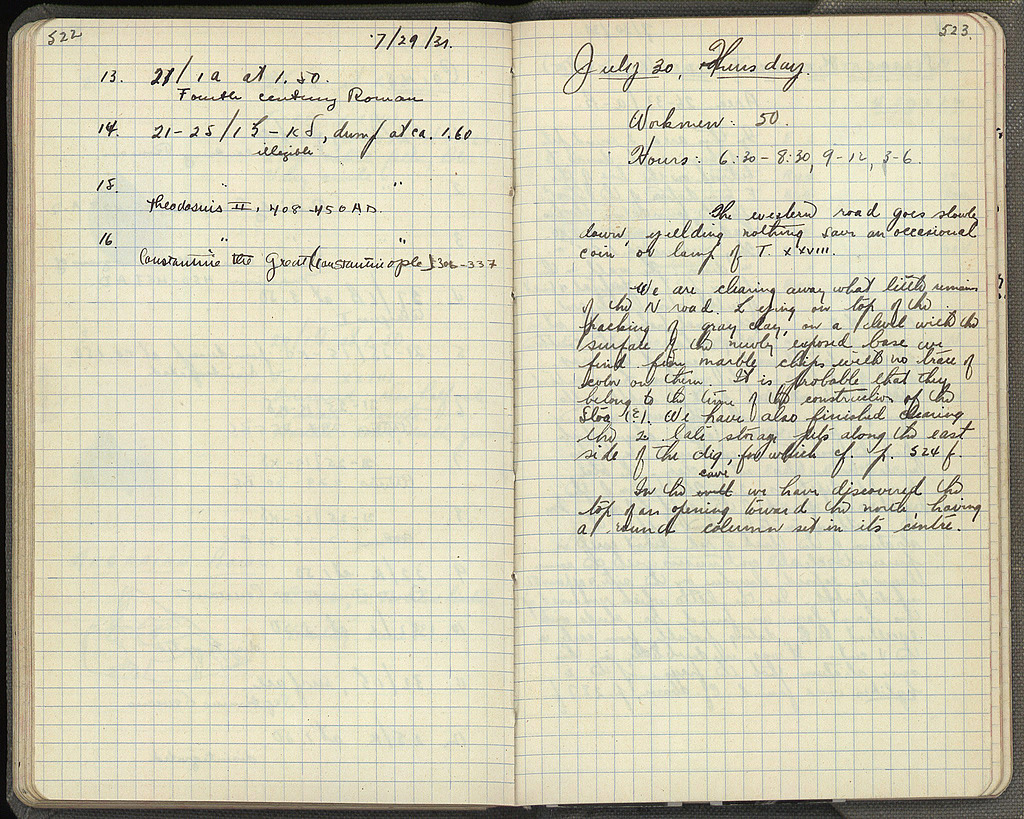 522
7/29/31.
13. 21/1a at 1.50.
Fourth century Roman
14. 21-25/1 - , dump at ca. 1.60
illegible
15. " "
Theodosius II, 408-450 A.D.
16. " "
Constantine the Great (Constantinople) 306-337
523.
July 30, Thursday.
Workmen: 50.
Hours: 6:30-8:30, 9-12, 3-6.
The western road goes slowly
down, yielding nothing save an occasional
coin or lamp of T. XXVIII.
We are clearing away what little remains
of the N road. Lying on top of the
packing of gray clay, on a level with the
surface of the newly exposed base we
find few marble chips with no trace of
color on them. It is probable that they
belong to the time of the construction of the
Stoa (?). We have also finished clearing
the 2 late storage pits along the east
side of the dig, for which cf. p. 524 f.
In the cave we have discovered the
top of an opening toward the north, having
a round column set in its centre.